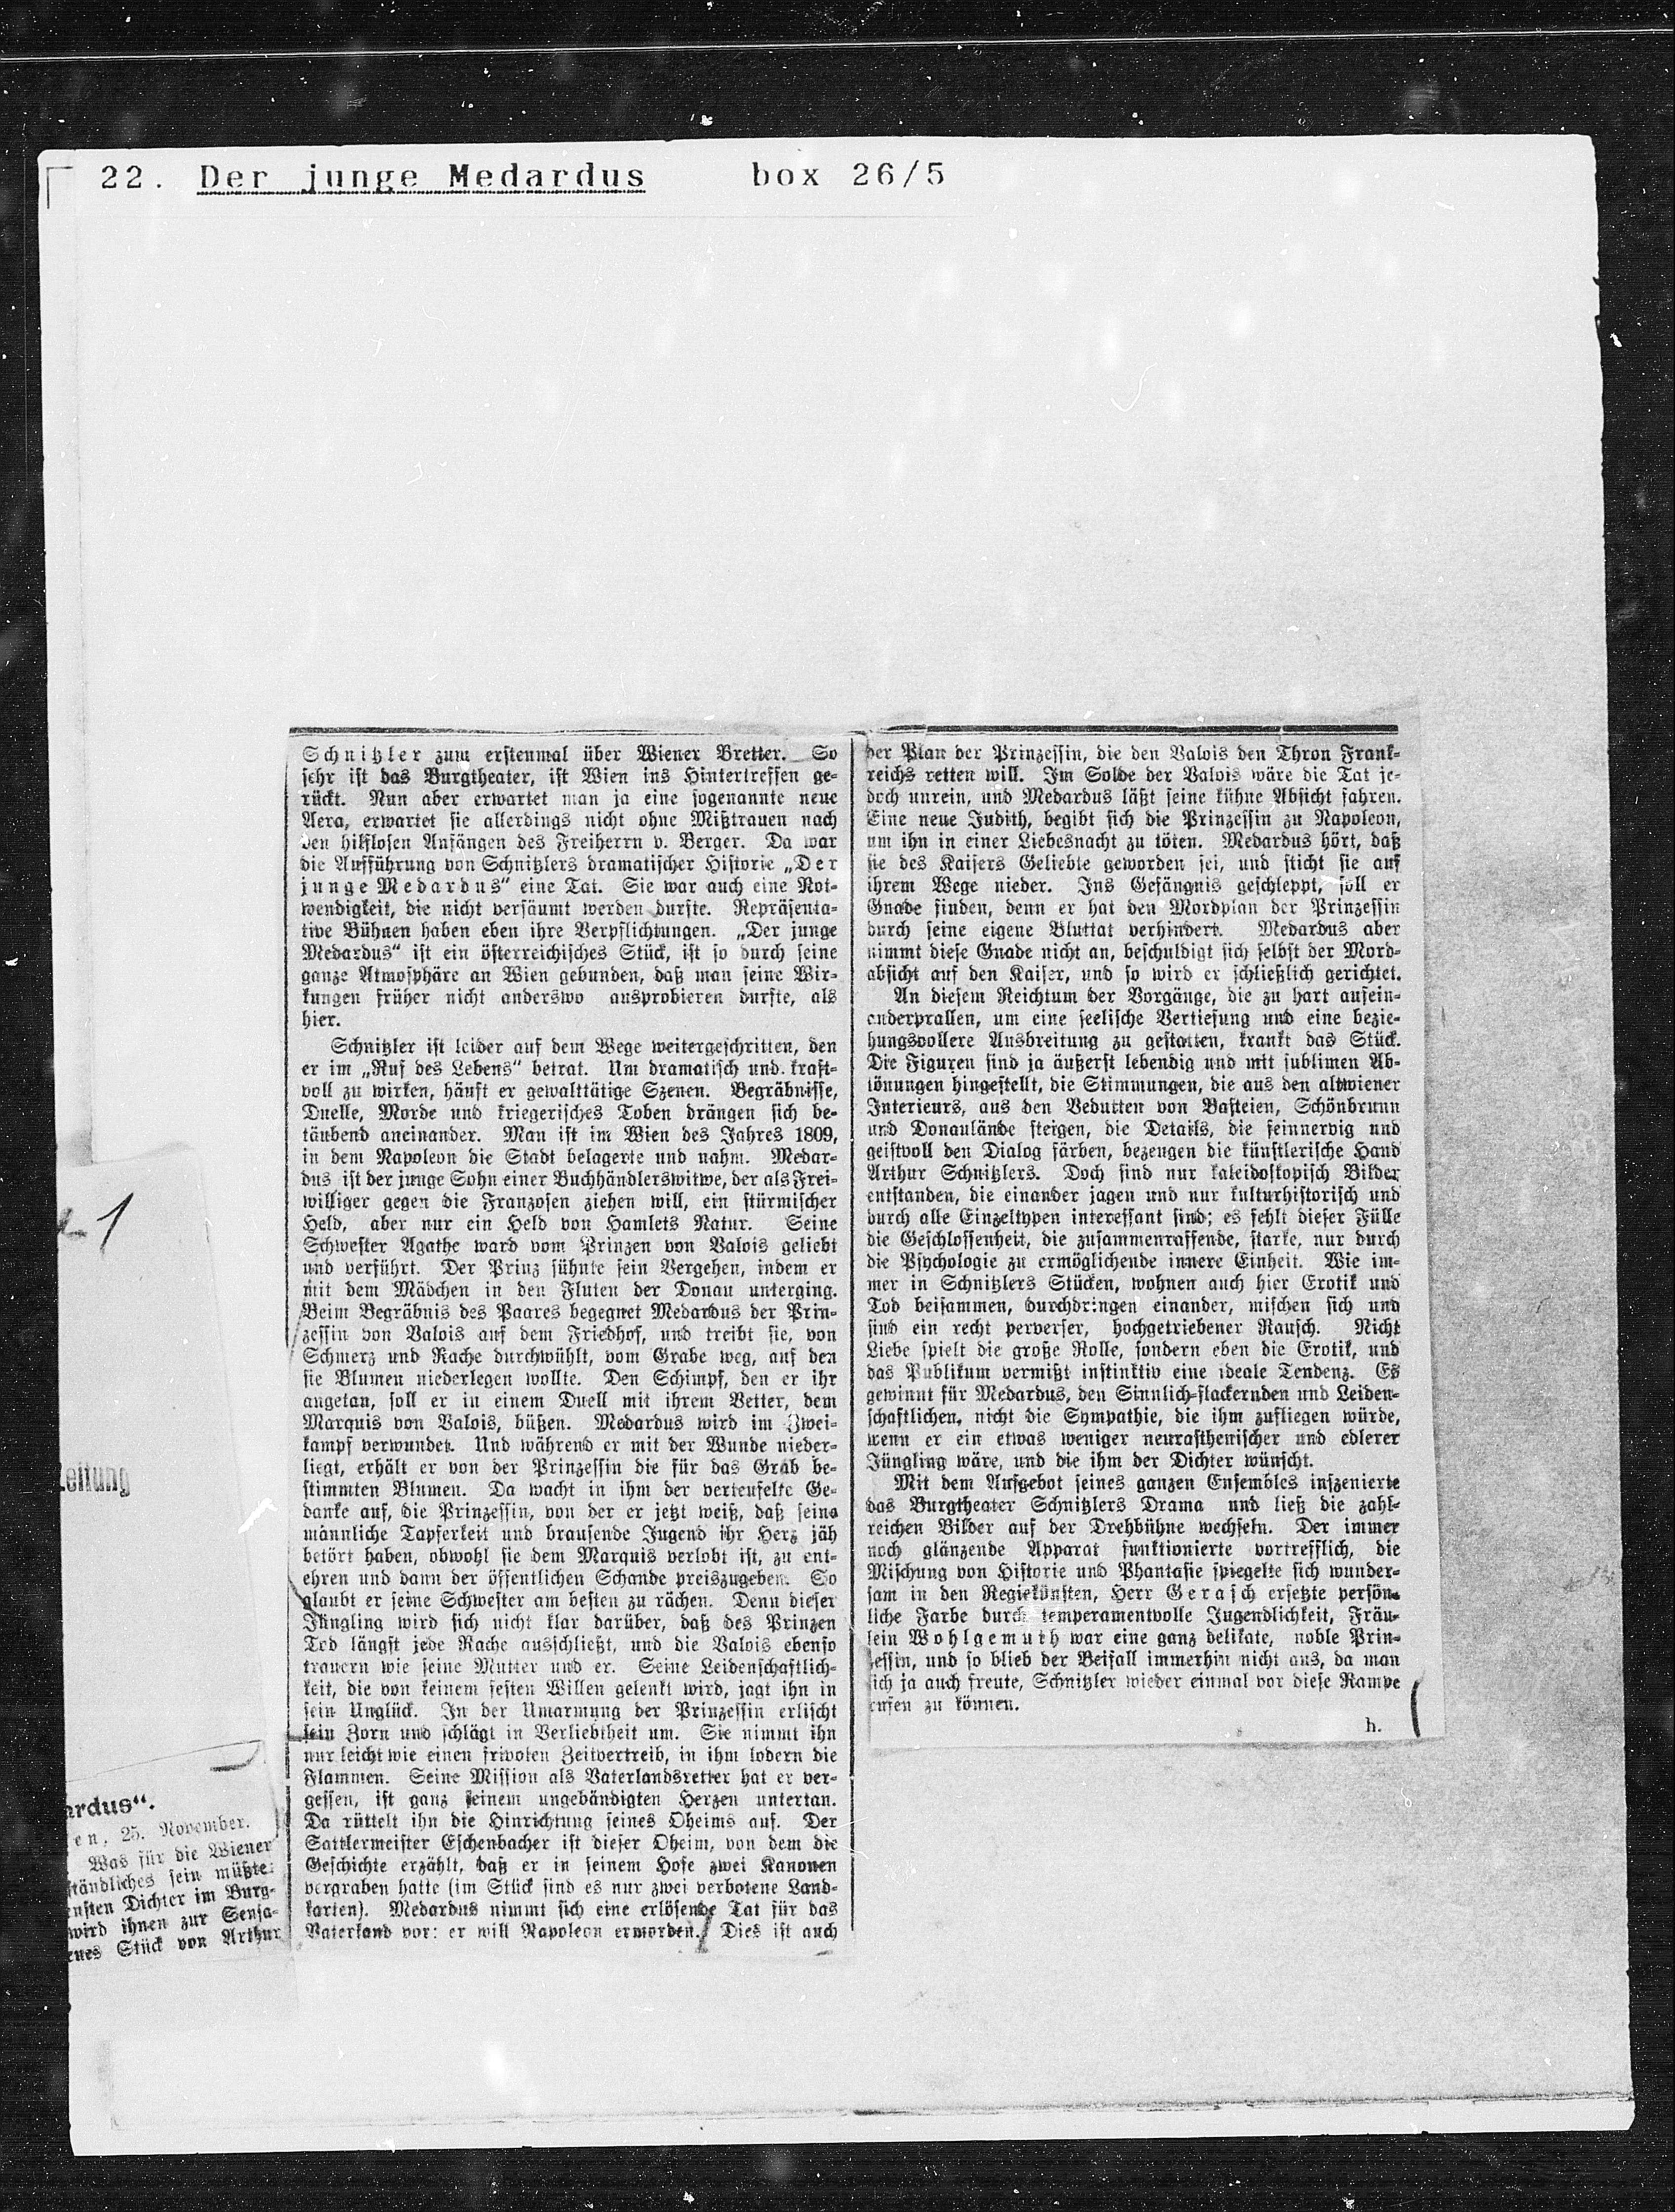 22. Der junge Medardus box 26/5
1
eitung
ardus“.
en, 25. November.
Was für die Wiener
ständliches sein müßte:
ensten Dichter im Burg-
wird ihnen zur Sensa-
enes Stück von Arthur
Schnitzler zum erstenmal über Wiener Bretter. So
sehr ist das Burgtheater, ist Wien ins Hintertreffen ge-
rückt. Nun aber erwartet man ja eine sogenannte neue
Aera, erwartet sie allerdings nicht ohne Mißtrauen nach
den hilflosen Anfängen des Freiherrn v. Berger. Da war
die Aufführung von Schnitzlers dramatischer Historie „Der
junge Medardus“ eine Tat. Sie war auch eine Not-
wendigkeit, die nicht versäumt werden durfte. Repräsenta-
tive Bühnen haben eben ihre Verpflichtungen. „Der junge
Medardus“ ist ein österreichisches Stück, ist so durch seine
ganze Atmosphäre an Wien gebunden, daß man seine Wir-
kungen früher nicht anderswo ausprobieren durfte, als
hier.
Schnitzler ist leider auf dem Wege weitergeschritten, den
er im „Ruf des Lebens“ betrat. Um dramatisch und kraft-
voll zu wirken, häuft er gewalttätige Szenen. Begräbnisse,
Duelle, Morde und kriegerisches Toben drängen sich be-
täubend aneinander. Man ist im Wien des Jahres 1809,
in dem Napoleon die Stadt belagerte und nahm. Medar-
dus ist der junge Sohn einer Buchhändlerswitwe, der als Frei-
williger gegen die Franzosen ziehen will, ein stürmischer
Held, aber nur ein Held von Hamlets Natur. Seine
Schwester Agathe ward vom Prinzen von Valois geliebt
und verführt. Der Prinz sühnte sein Vergehen, indem er
mit dem Mädchen in den Fluten der Donau unterging.
Beim Begräbnis des Paares begegnet Medardus der Prin-
zessin von Valois auf dem Friedhof, und treibt sie, von
Schmerz und Rache durchwühlt, vom Grabe weg, auf den
sie Blumen niederlegen wollte. Den Schimpf, den er ihr
angetan, soll er in einem Duell mit ihrem Vetter, dem
Marquis von Valois, büßen. Medardus wird im Zwei-
kampf verwundet. Und während er mit der Wunde nieder-
liegt, erhält er von der Prinzessin die für das Grab be-
stimmten Blumen. Da wacht in ihm der verteufelte Ge-
danke auf, die Prinzessin, von der er jetzt weiß, daß seine
männliche Tapferkeit und brausende Jugend ihr Herz jäh
betört haben, obwohl sie dem Marquis verlobt ist, zu ent-
ehren und dann der öffentlichen Schande preiszugeben. So
glaubt er seine Schwester am besten zu rächen. Denn dieser
Jüngling wird sich nicht klar darüber, daß des Prinzen
Tod längst jede Rache ausschließt, und die Valois ebenso
trauern wie seine Mutter und er. Seine Leidenschaftlich-
keit, die von keinem festen Willen gelenkt wird, jagt ihn in
sein Unglück. In der Umarmung der Prinzessin erlischt
sein Zorn und schlägt in Verliebtheit um. Sie nimmt ihn
nur leicht wie einen frivolen Zeitvertreib, in ihm lodern die
Flammen. Seine Mission als Vaterlandsretter hat er ver-
gessen, ist ganz seinem ungebändigten Herzen untertan.
Da rüttelt ihn die Hinrichtung seines Oheims auf. Der
Sattlermeister Eschenbacher ist dieser Oheim, von dem die
Geschichte erzählt, daß er in seinem Hofe zwei Kanonen
vergraben hatte (im Stück sind es nur zwei verbotene Land-
karten). Medardus nimmt sich eine erlösende Tat für das
Vaterland vor: er will Napoleon ermorden. Dies ist auch
der Plan der Prinzessin, die den Valois den Thron Frank-
reichs retten will. Im Solde der Valois wäre die Tat je-
doch unrein, und Medardus läßt seine kühne Absicht fahren.
Eine neue Judith, begibt sich die Prinzessin zu Napoleon,
um ihn in einer Liebesnacht zu töten. Medardus hört, daß
sie des Kaisers Geliebte geworden sei, und sticht sie auf
ihrem Wege nieder. Ins Gefängnis geschleppt, soll er
Gnade finden, denn er hat den Mordplan der Prinzessin
durch seine eigene Bluttat verhindert. Medardus aber
nimmt diese Gnade nicht an, beschuldigt sich selbst der Mord-
absicht auf den Kaiser, und so wird er schließlich gerichtet.
An diesem Reichtum der Vorgänge, die zu hart aufein-
anderprallen, um eine seelische Vertiefung und eine bezie-
hungsvollere Ausbreitung zu gestatten, krankt das Stück.
Die Figuren sind ja äußerst lebendig und mit sublimen Ab-
tönungen hingestellt, die Stimmungen, die aus den altwiener
Interieurs, aus den Vedutten von Basteien, Schönbrunn
und Donaulände steigen, die Details, die feinnervig und
geistvoll den Dialog färben, bezeugen die künstlerische Hand
Arthur Schnitzlers. Doch sind nur kaleidoskopisch Bilder
entstanden, die einander jagen und nur kulturhistorisch und
durch alle Einzeltypen interessant sind; es fehlt dieser Fülle
die Geschlossenheit, die zusammenraffende, starke, nur durch
die Psychologie zu ermöglichende innere Einheit. Wie im-
mer in Schnitzlers Stücken, wohnen auch hier Erotik und
Tod beisammen, durchdringen einander, mischen sich und
sind ein recht perverser, hochgetriebener Rausch. Nicht
Liebe spielt die große Rolle, sondern eben die Erotik, und
das Publikum vermißt instinktiv eine ideale Tendenz. Es
gewinnt für Medardus, den Sinnlich-flackernden und Leiden-
schaftlichen, nicht die Sympathie, die ihm zufliegen würde,
wenn er ein etwas weniger neurasthenischer und edlerer
Jüngling wäre, und die ihm der Dichter wünscht.
Mit dem Aufgebot seines ganzen Ensembles inszenierte
das Burgtheater Schnitzlers Drama und ließ die zahl-
reichen Bilder auf der Drehbühne wechseln. Der immer
noch glänzende Apparat funktionierte vortrefflich, die
Mischung von Historie und Phantasie spiegelte sich wunder-
sam in den Regiekünsten, Herr Gerasch ersetzte persön-
liche Farbe durch temperamentvolle Jugendlichkeit, Fräu-
lein Wohlgemuth war eine ganz delikate, noble Prin-
zessin, und so blieb der Beifall immerhin nicht aus, da man
sich ja auch freute, Schnitzler wieder einmal vor diese Rampe
rufen zu können.
h.